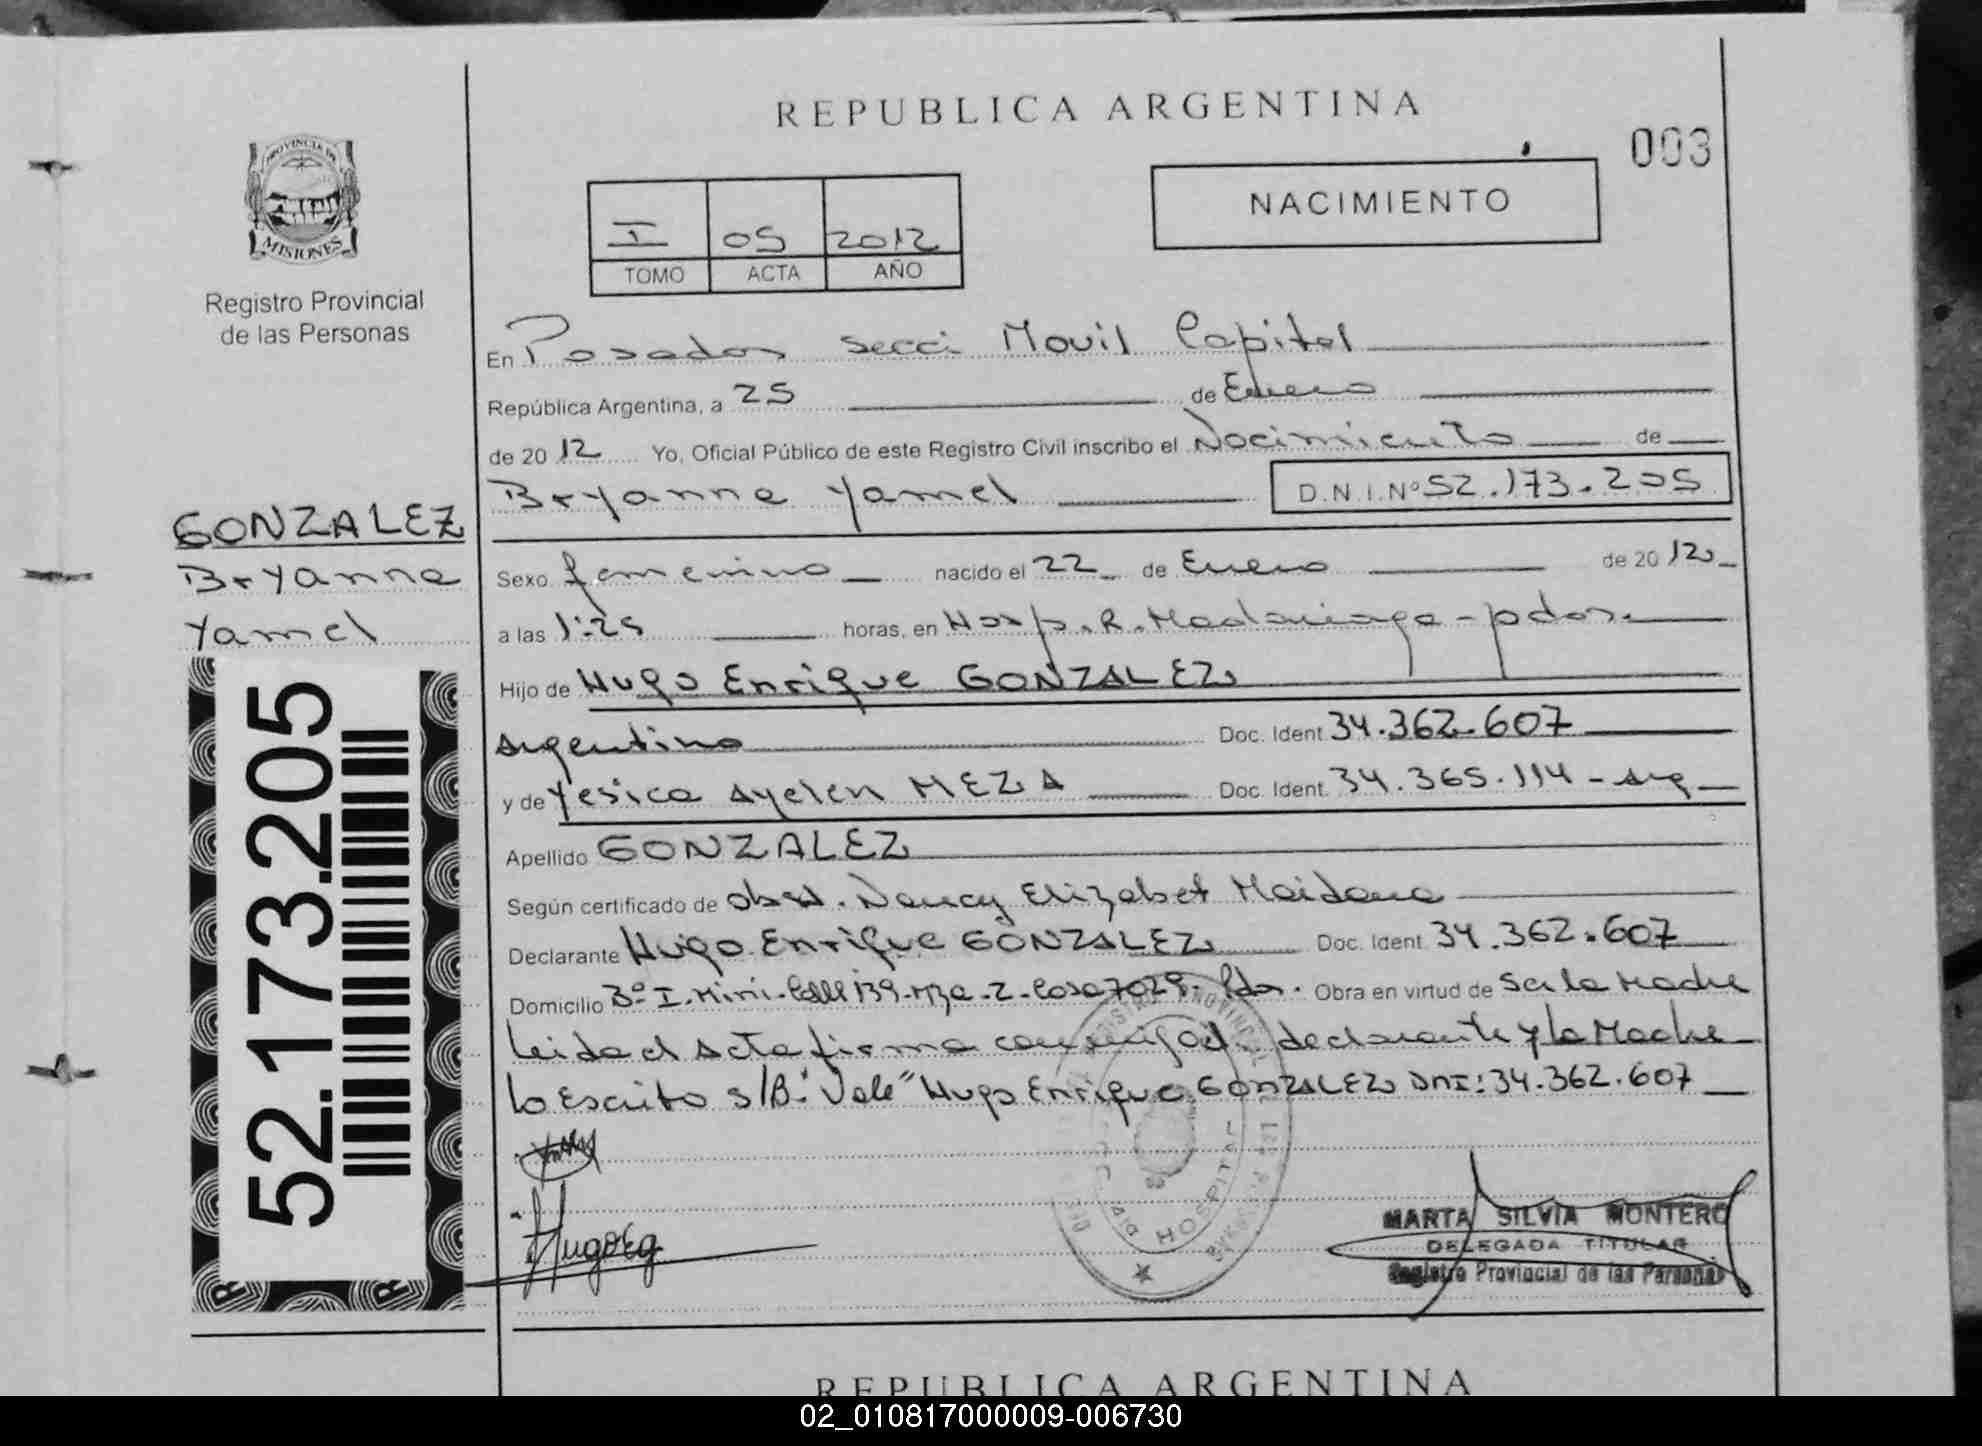 REPUBLICA ARGENTINA
003
PROVINCIA DE
MISIONES
Registro Provincial
de las Personas
I 05 2012
TOMO ACTA AÑO
NACIMIENTO
En Posadas secci Movil Capital
República Argentina, a 25 de Enero
de 2012 Yo, Oficial Público de este Registro Civil inscribo el Nacimiento de
Bryanna Yamel D.N.I.Nº 52.173.205
GONZALEZ
Bryanna
Yamel
52.173.205
Sexo femenino nacido el 22 de Enero de 2012
a las 1:25 horas, en Hosp. R. Madariaga - pdas.
Hijo de Hugo Enrique GONZALEZ
Argentino Doc. Ident 34.362.607
y de Yesica Ayelen MEZA Doc. Ident. 34.365.114 - Arg
Apellido GONZALEZ
Según certificado de obst. Nancy Elizabet Maidana
Declarante Hugo Enrique GONZALEZ Doc. Ident 34.362.607
Domicilio Bº I. Mini - Calle 139 - Mza - 2 - Casa 7029 - Pdas. Obra en virtud de Ser la Madre
Leida el Acta firma conmigo el declarante y la Madre
Lo Escrito s/B: "Vale" Hugo Enrique GONZALEZ DNI: 34.362.607
HugoEg
HOSPITAL
MARTA SILVIA MONTERO
DELEGADA TITULAR
Registro Provincial de las Personas
REPUBLICA ARGENTINA
02_010817000009-006730